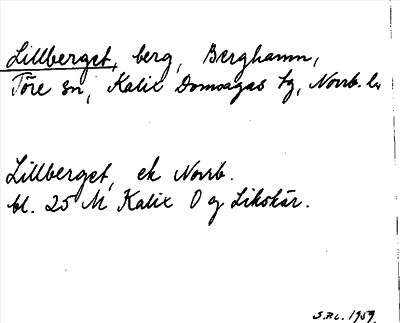 Lillberget, berg, Berghamn,
Töre sn, Kalix Domsagas tg, Norrb. l.
Lillberget, ek Norrb.
bl. 25 M Kalix O g Likskär.
1959.